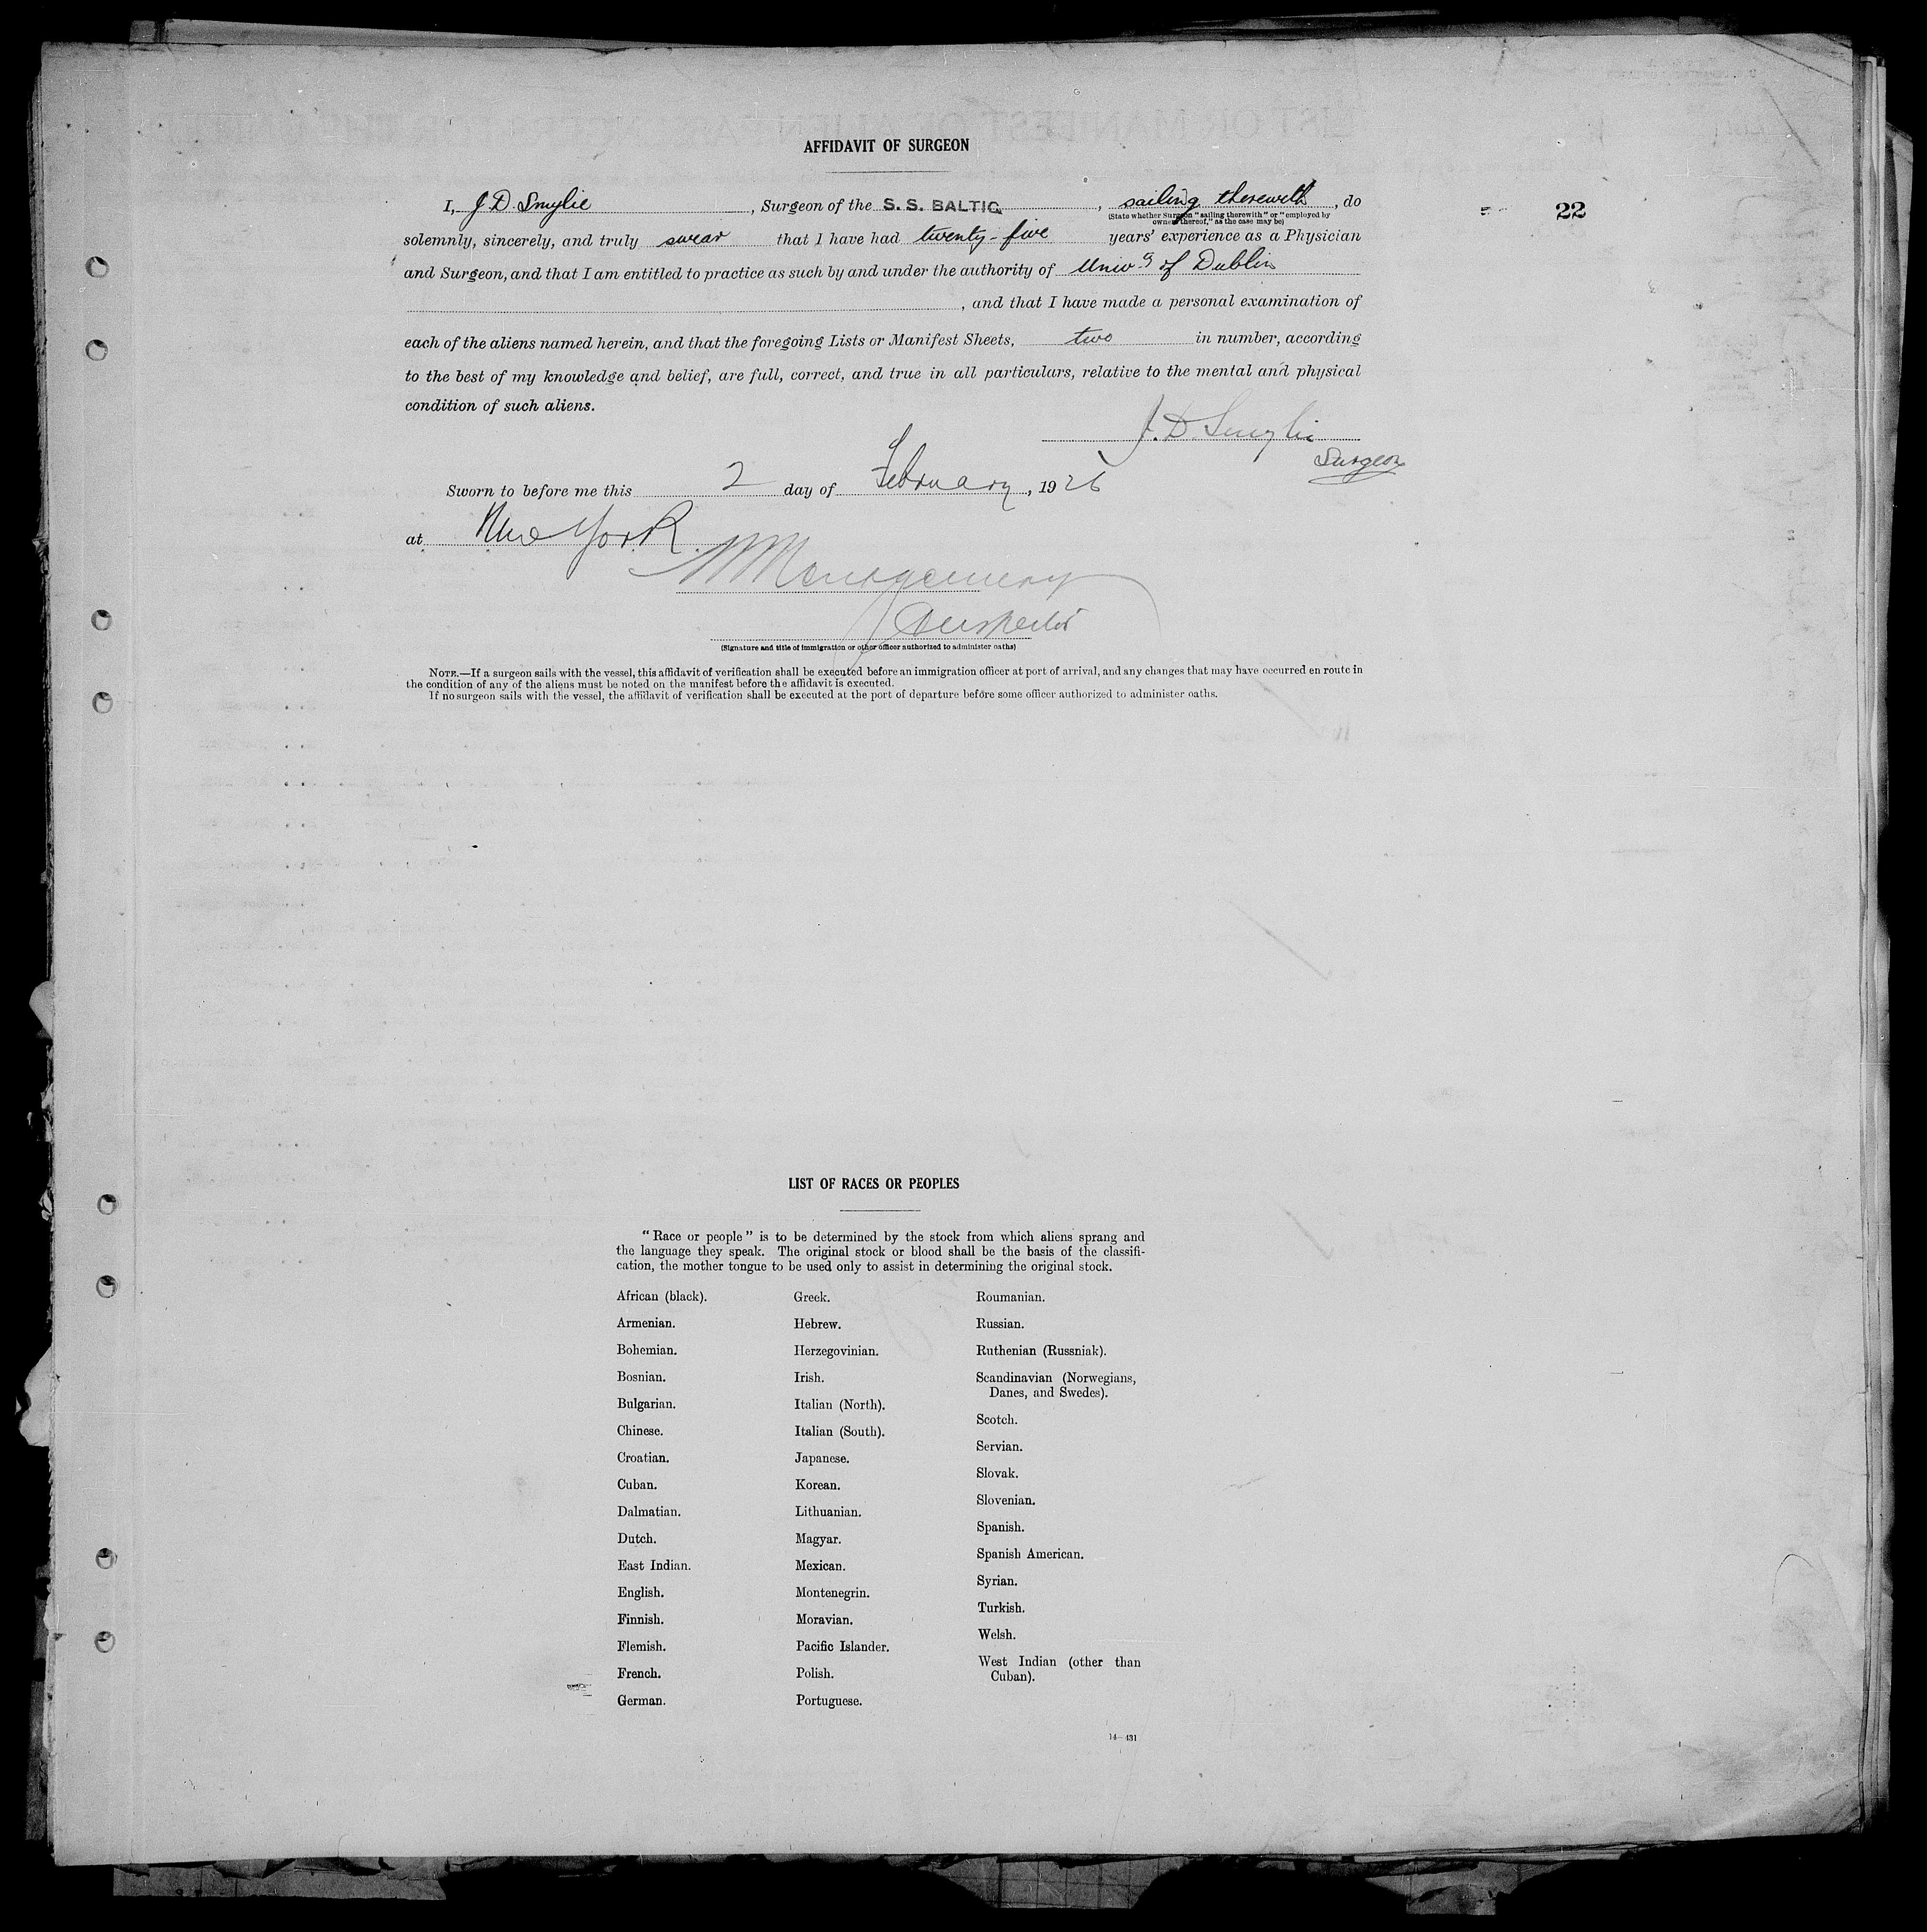 AFFIDAVIT OF SURGEON
I, J. D. Smylie, Surgeon of the S. S. BALTIC, sailing therewith, do
(State whether surgeon "sailing therewith" or "employed by
owners thereof," as the case may be)
22
solemnly, sincerely, and truly swear that I have had twenty-five years' experience as a Physician
and Surgeon, and that I am entitled to practice as such by and under the authority of Univ. of Dublin
, and that I have made a personal examination of
each of the aliens named herein, and that the foregoing Lists or Manifest Sheets, two in number, according
to the best of my knowledge and belief, are full, correct, and true in all particulars, relative to the mental and physical
condition of such aliens.
J. D. Smylie
Surgeon
Sworn to before me this 2 day of February, 1926
at New York.
Montgomery
Inspector
(Signature and title of immigration or other officer authorized to administer oaths)
NOTE.—If a surgeon sails with the vessel, this affidavit of verification shall be executed before an immigration officer at port of arrival, and any changes that may have occurred en route in
the condition of any of the aliens must be noted on the manifest before the affidavit is executed.
If no surgeon sails with the vessel, the affidavit of verification shall be executed at the port of departure before some officer authorized to administer oaths.
LIST OF RACES OR PEOPLES
"Race or people" is to be determined by the stock from which aliens sprang and
the language they speak. The original stock or blood shall be the basis of the classifi-
cation, the mother tongue to be used only to assist in determining the original stock.
African (black).
Armenian.
Bohemian.
Bosnian.
Bulgarian.
Chinese.
Croatian.
Cuban.
Dalmatian.
Dutch.
East Indian.
English.
Finnish.
Flemish.
French.
German.
Greek.
Hebrew.
Herzegovinian.
Irish.
Italian (North).
Italian (South).
Japanese.
Korean.
Lithuanian.
Magyar.
Mexican.
Montenegrin.
Moravian.
Pacific Islander.
Polish.
Portuguese.
Roumanian.
Russian.
Ruthenian (Russniak).
Scandinavian (Norwegians,
Danes, and Swedes).
Scotch.
Servian.
Slovak.
Slovenian.
Spanish.
Spanish American.
Syrian.
Turkish.
Welsh.
West Indian (other than
Cuban).
14—431